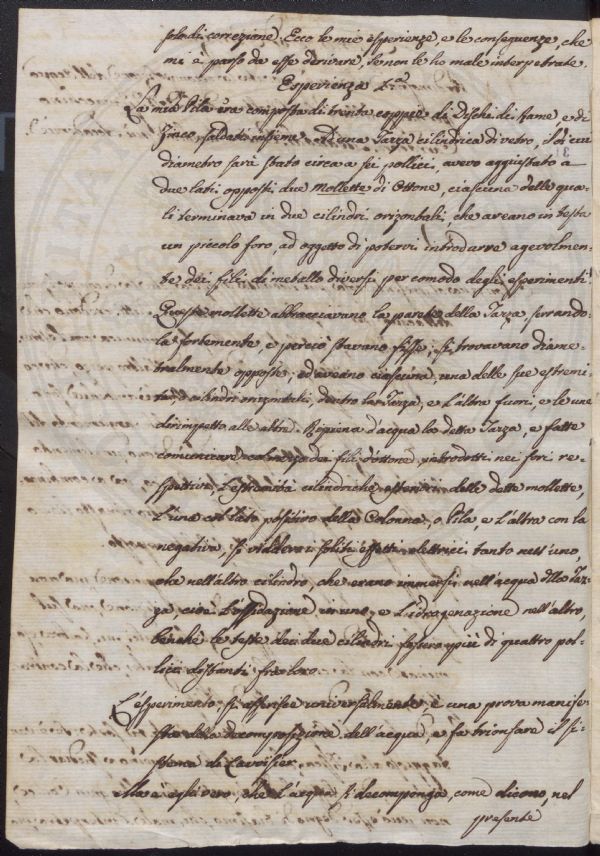 pote di correzione. Ecco le mie esperienze, e le conseguenze, che
mi è parso da esse derivare, se non le ho male interpetrate.
Esperienza 1.ma
La mia Pila era composta di trenta coppie di Dischi di Rame, e di
Zinco, saldati insieme. D'una Tazza cilindrica di vetro, il di cui
diametro sarà stato circa a sei pollici, avevo aggiustato a
due lati opposti due mollette di Ottone, ciascuna delle qua-
li terminava in due cilindri orizontali, che aveano in testa
un piccolo foro, ad oggetto di potervi introdurre agevolmen-
te dei fili di metallo diversi per comodo degli esperimenti.
Queste mollette abbracciavano la parete della Tazza serrando-
la fortemente, e perciò stavano fisse; si trovavano diame-
tralmente opposte, ed aveano ciascuna una delle sue estremi-
tà cilindri orizontali dentro la Tazza, e l'altra fuori, e le une
dirimpetto alle altre. Ripiena d'acqua la detta Tazza, e fatte
comunicare col mezzo dei fili d'ottone, introdotti nei fori re-
spettivi, l'estremità cilindriche esteriori delle dette mollette,
l'una col lato positivo della Colonna, o Pila, e l'altra con la
negativa, si viddero i soliti effetti elettrici tanto nell'uno,
che nell'altro cilindro, che erano immersi nell'acqua della Taz-
za cioè l'ossidazione in uno, e l'idrogenazione nell'altro,
benchè le teste dei due cilindri fossero più di quattro pol-
lici distanti fra loro.
L'esperimento si asserisce universalmente è una prova manife-
sta della decomposizione dell'acqua, e fa trionfare il si-
stema di Lavoisier.
Ma è egli vero, che l'acqua si decomponga, come dicono, nel
presente